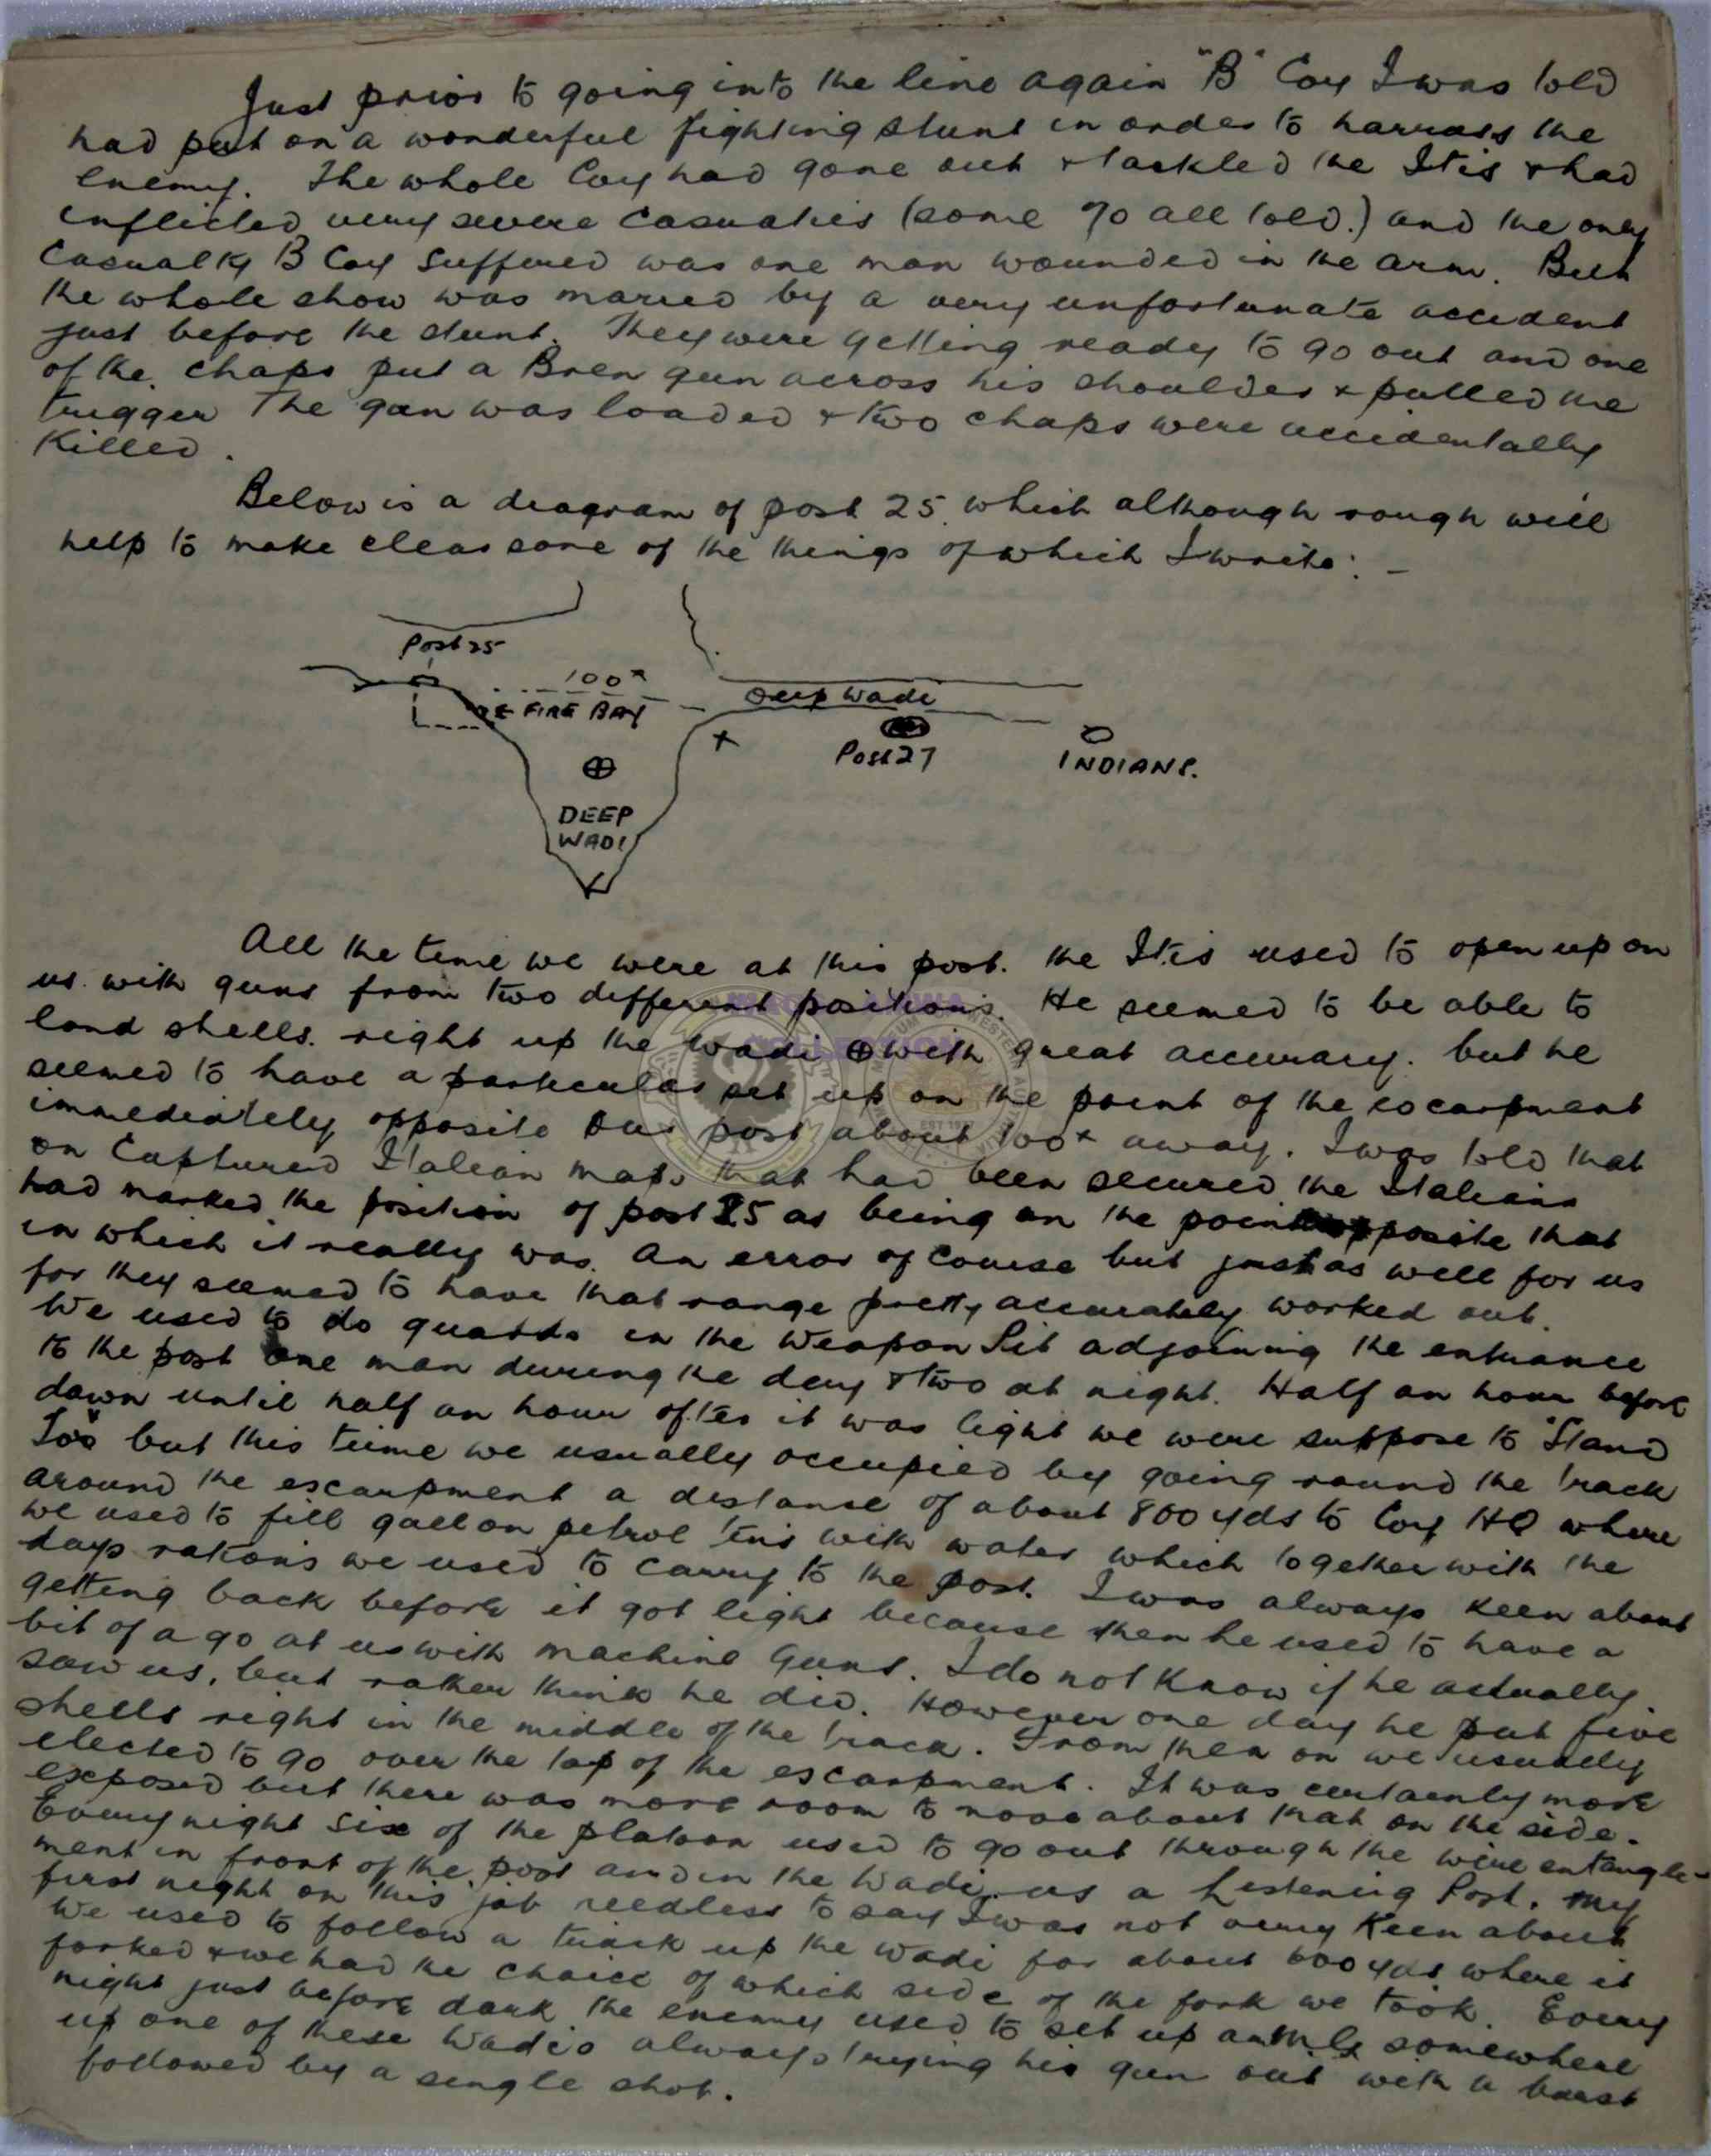 Just prior to going into the line again "B" Coy I was told
had put on a wonderful fighting stunt in order to harrass the
enemy. The whole Coy had gone out & tackled the Itis & had
inflicted very severe casualties (some 70 all told.) and the only
casualty B Coy suffered was one man wounded in the arm. But
the whole show was marred by a very unfortunate accident
just before the stunt. They were getting ready to go out and one
of the chaps put a Bren gun across his shoulder & pulled the
trigger The gun was loaded & two chaps were accidentally
killed.
Below is a diagram of post 25 which although rough will
help to make clear some of the things of which I write: -
Post 25
100x
FIRE BAY
Deep Wadi
Post 27
INDIANS.
DEEP
WADI
All the time we were at this post. the Itis used to open up on
us with guns from two different positions. He seemed to be able to
land shells right up the wadi ⊕ with great accuracy. but he
seemed to have a particular set up on the point of the escarpment
immediately opposite our post about 100x away. I was told that
on captured Italian maps that had been secured the Italians
had marked the position of post 25 as being on the point opposite that
in which it really was. An error of course but just as well for us
for they seemed to have that range pretty accurately worked out.
We used to do guards in the Weapon Pit adjoining the entrance
to the post one man during the day & two at night. Half an hour before
dawn until half an hour after it was light we were suppose to "Stand
Too" but this time we usually occupied by going round the track
around the escarpment a distance of about 800 yds to Coy HQ where
we used to fill gallon petrol tins with water which together with the
days rations we used to carry to the post. I was always keen about
getting back before it got light because then he used to have a
bit of a go at us with machine guns. I do not know if he actually
saw us, but rather think he did. However one day he put five
shells right in the middle of the track. From then on we usually
elected to go over the top of the escarpment. It was certainly more
exposed but there was more room to move about that on the side.
Every night six of the platoon used to go out through the wire entangle-
ment in front of the post and in the Wadi as a Listening Post. My
first night on this job needless to say I was not very keen about.
We used to follow a track up the wadi for about 600 yds where it
forked & we had the choice of which side of the fork we took. Every
night just before dark the enemy used to set up somewhere
up one of these Wadis always trying his gun out with a burst
followed by a single shot.